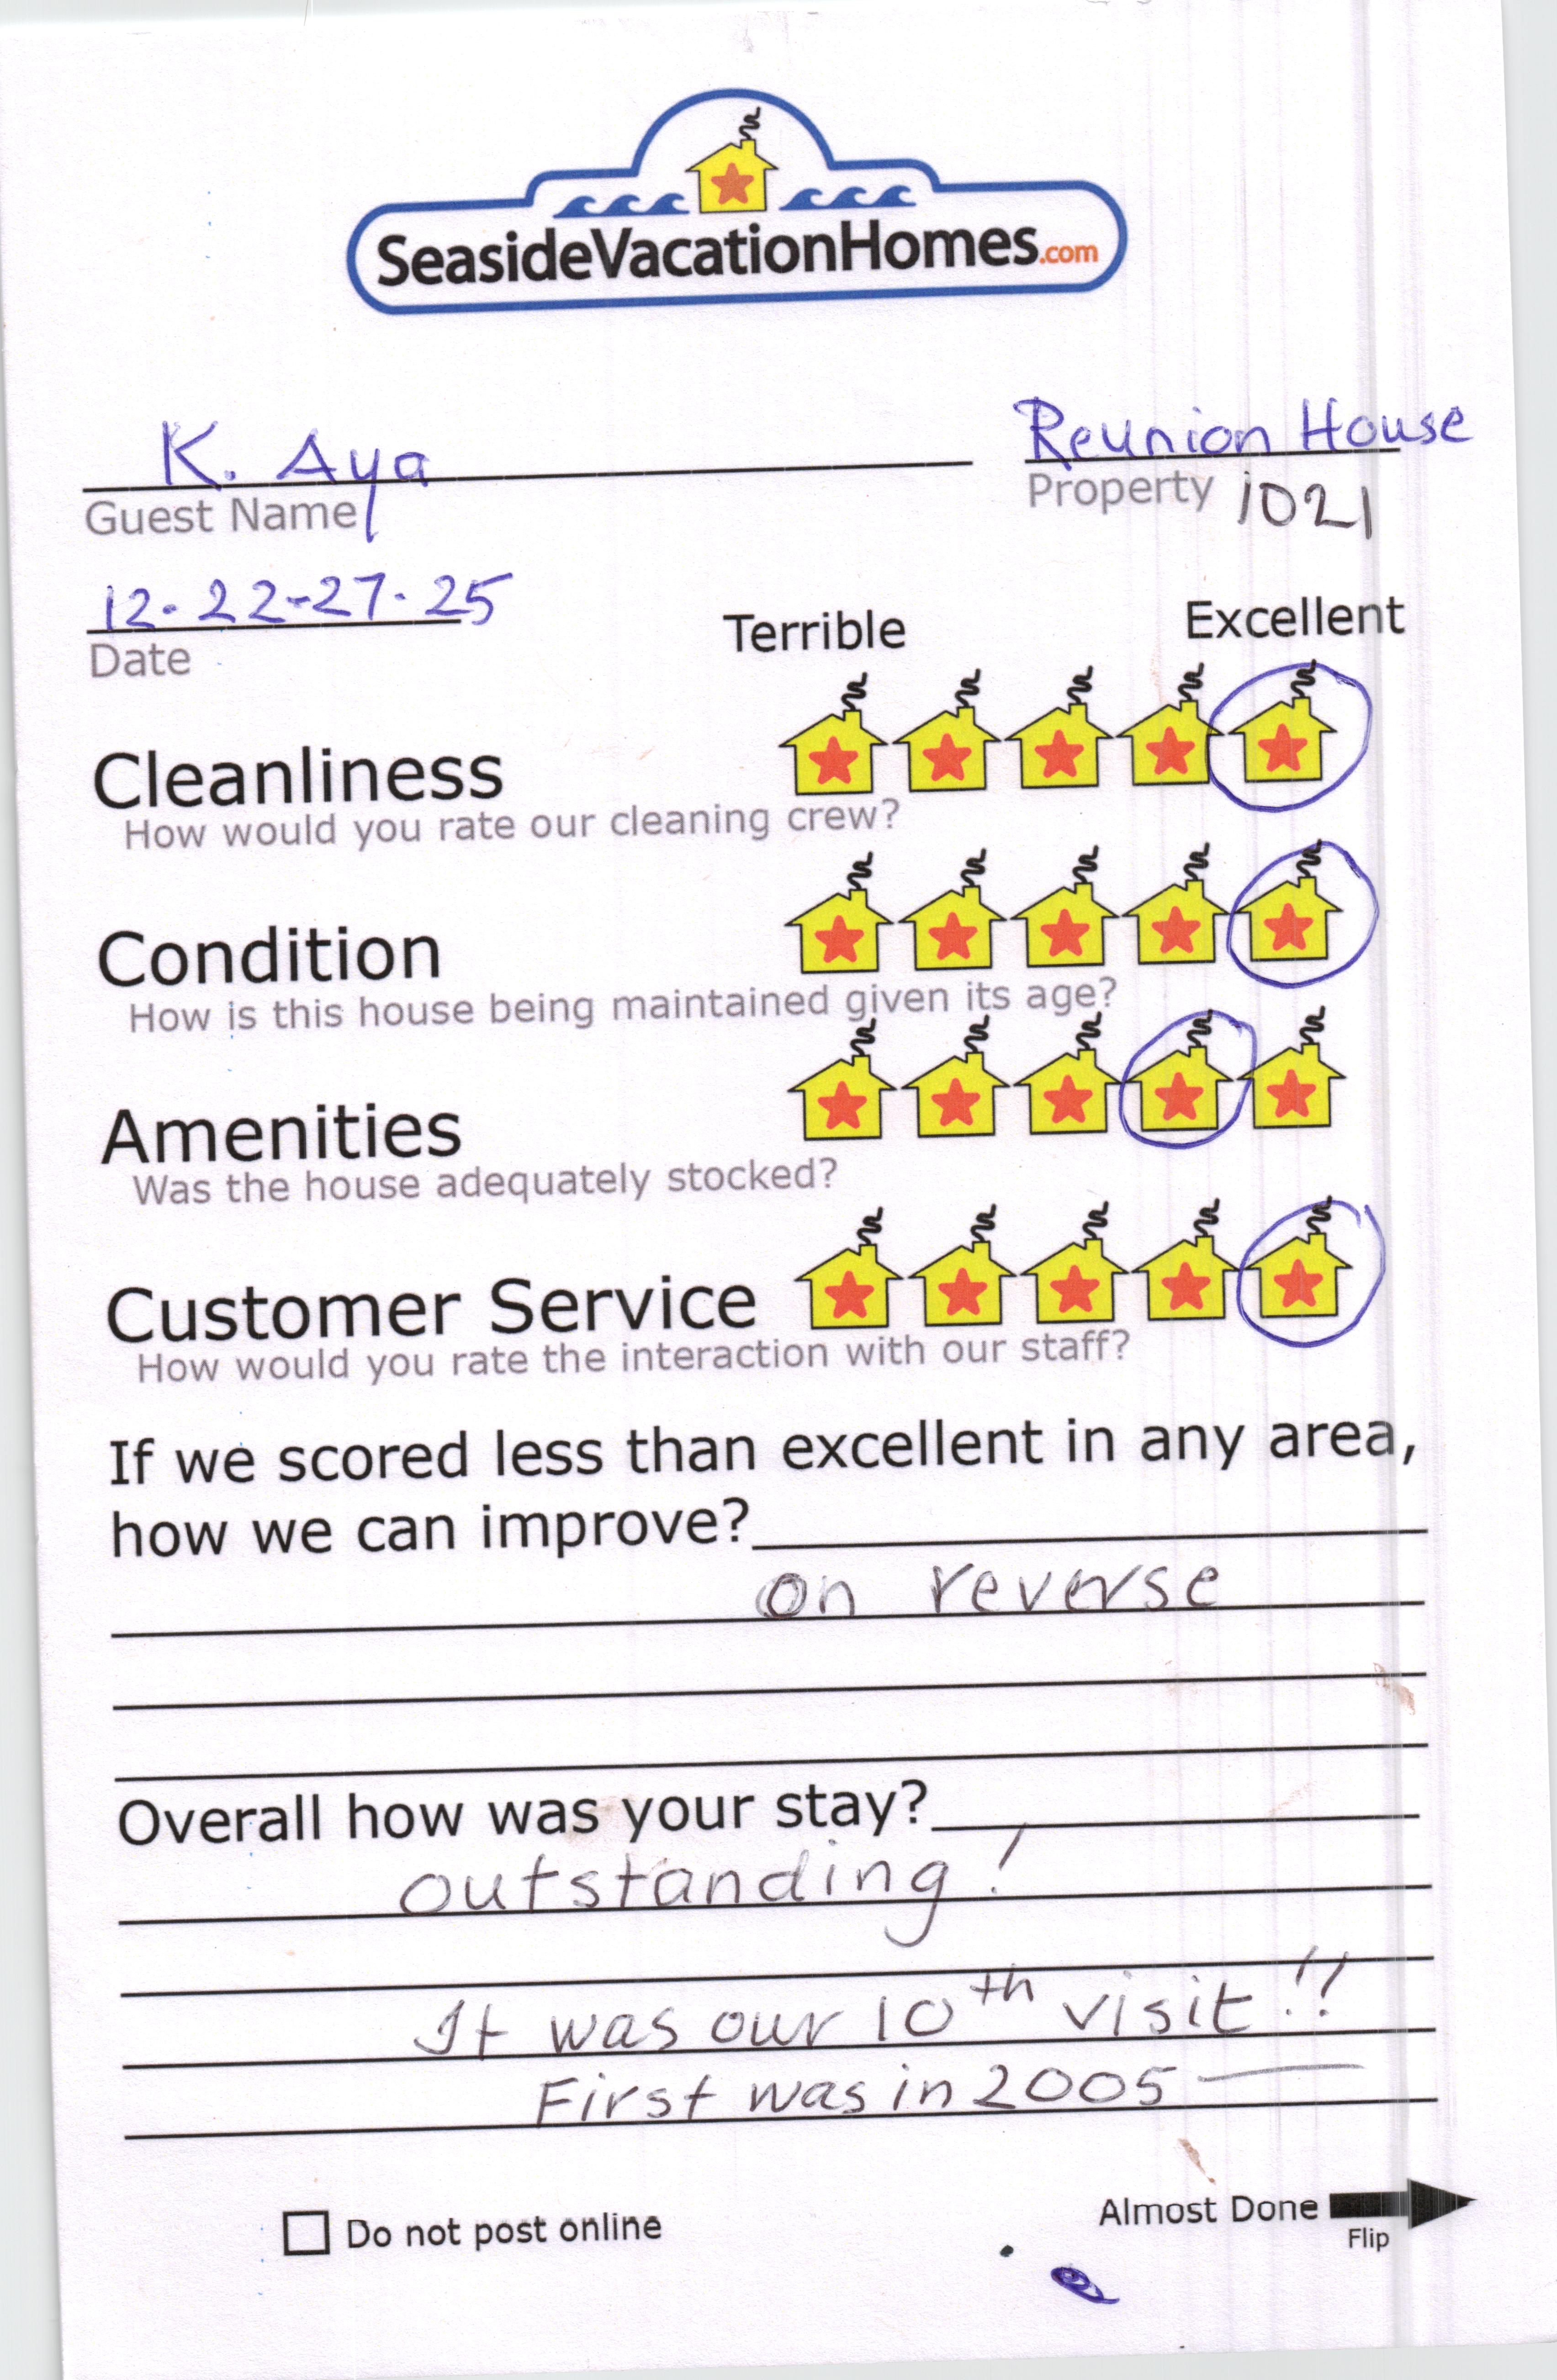 SeasideVacationHomes.com
K. Aya
Reunion House
Guest Name
Property 1021
12-22-27-25
Date
Terrible
Excellent
Cleanliness
How would you rate our cleaning crew?
Condition
How is this house being maintained given its age?
Amenities
Was the house adequately stocked?
Customer Service
How would you rate the interaction with our staff?
If we scored less than excellent in any area,
how we can improve?
on reverse
Overall how was your stay?
outstanding!
It was our 10th visit!!
First was in 2005 —
Do not post online
Almost Done
Flip